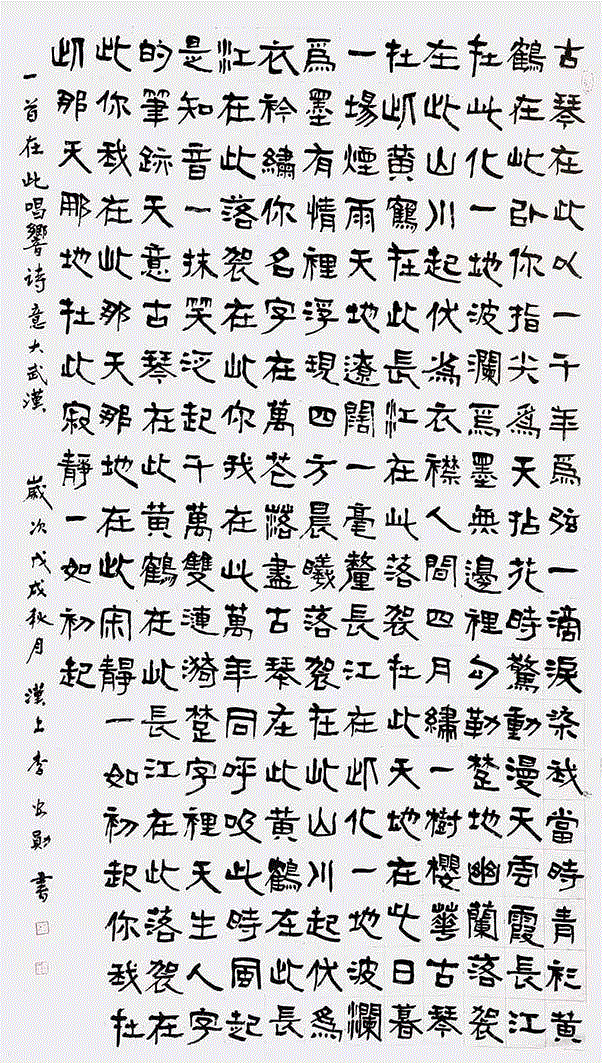 古琴在此以一千年爲弦一滴淚染我當時青衫黄
鶴在此卧你指尖爲天拈花時驚動漫天雲霞長江
在此化一地波瀾爲墨無邊裡勾勒楚地幽蘭落袈
在此山川起伏爲衣襟人間四月繡一樹櫻華古琴
在此黄鶴在此長江在此落袈在此天地在此日暮
一場煙雨天地遼闊一毫釐長江在此化一地波瀾
爲墨有情裡浮現四方晨曦落袈在此山川起伏爲
衣衿繡你名字在萬苍落盡古琴在此黄鶴在此長
江在此落袈在此你我在此萬年同呼吸此時風起
是知音一抹笑泛起千萬雙漣漪楚字裡天生人字
的筆跡天意古琴在此黄鶴在此長江在此落袈在
此你我在此那天那地在此闹静一如初起你我在
此那天那地在此寂静一如初起
一首在此唱響诗意大武漢 歲次戊戌秋月 漢上李安勛書